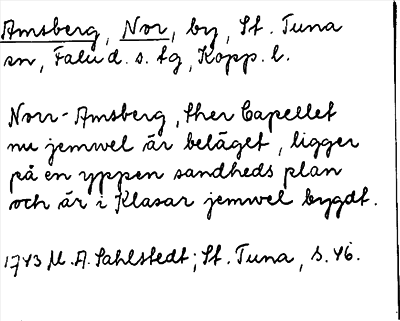 Amsberg, Nor, by, St. Tuna
sn, Falu d. s. tg, Kopp. l.
Norr-Amsberg, ther Capellet
nu jemwel är beläget, ligger
på en yppen sandheds plan
och är i Klasar jemwel bygdt.
1743 M. A. Sahlstedt; St. Tuna, s. 46.